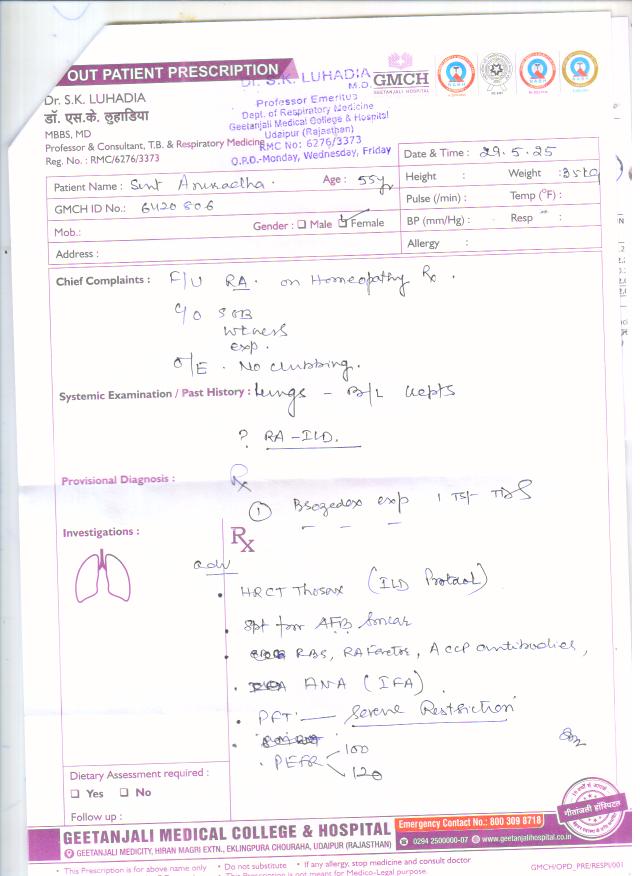 OUT PATIENT PRESCRIPTION
Dr. S.K. LUHADIA
M.D.
Professor Emeritus
Dept. of Respiratory Medicine
Geetanjali Medical College & Hospital
Udaipur (Rajasthan)
RMC No: 6276/3373
O.P.D.-Monday, Wednesday, Friday
GMCH
GEETANJALI HOSPITAL
Dr. S.K. LUHADIA
डॉ. एस.के. लुहाड़िया
MBBS, MD
Professor & Consultant, T.B. & Respiratory Medicine
Reg. No. : RMC/6276/3373
Date & Time : 29.5.25
Patient Name : Smt Anuradha. Age : 55y
Height : Weight : 35kg
GMCH ID No.: 6420806
Pulse (/min) : Temp (°F) :
Mob.: Gender : Male Female
BP (mm/Hg) : Resp :
Address :
Allergy :
Chief Complaints : F/U RA. on Homeopathy Rx.
C/O SOB
exp.
O/E. No clubbing.
Systemic Examination / Past History : Lungs - B/L
? RA-ILD.
Provisional Diagnosis : Rx
① exp 1 TSF TDS
Investigations : Rx
adv
• HRCT Thorax (ILD Protocol)
• Spt for AFB Smear
• RBS, RA Factor, ACCP antibodies,
• ANA (IFA)
• PFT - Severe Restriction
• PEFR 100
120
Dietary Assessment required :
Yes No
Follow up :
गीतांजली हॉस्पिटल
GEETANJALI MEDICAL COLLEGE & HOSPITAL
Emergency Contact No.: 800 309 8718
GEETANJALI MEDICITY, HIRAN MAGRI EXTN., EKLINGPURA CHOURAHA, UDAIPUR (RAJASTHAN)
0294 2500000-07 www.geetanjalihospital.co.in
• This Prescription is for above name only • Do not substitute • If any allergy, stop medicine and consult doctor
• This Prescription is not meant for Medico-Legal purpose.
GMCH/OPD_PRE/RESPI/001